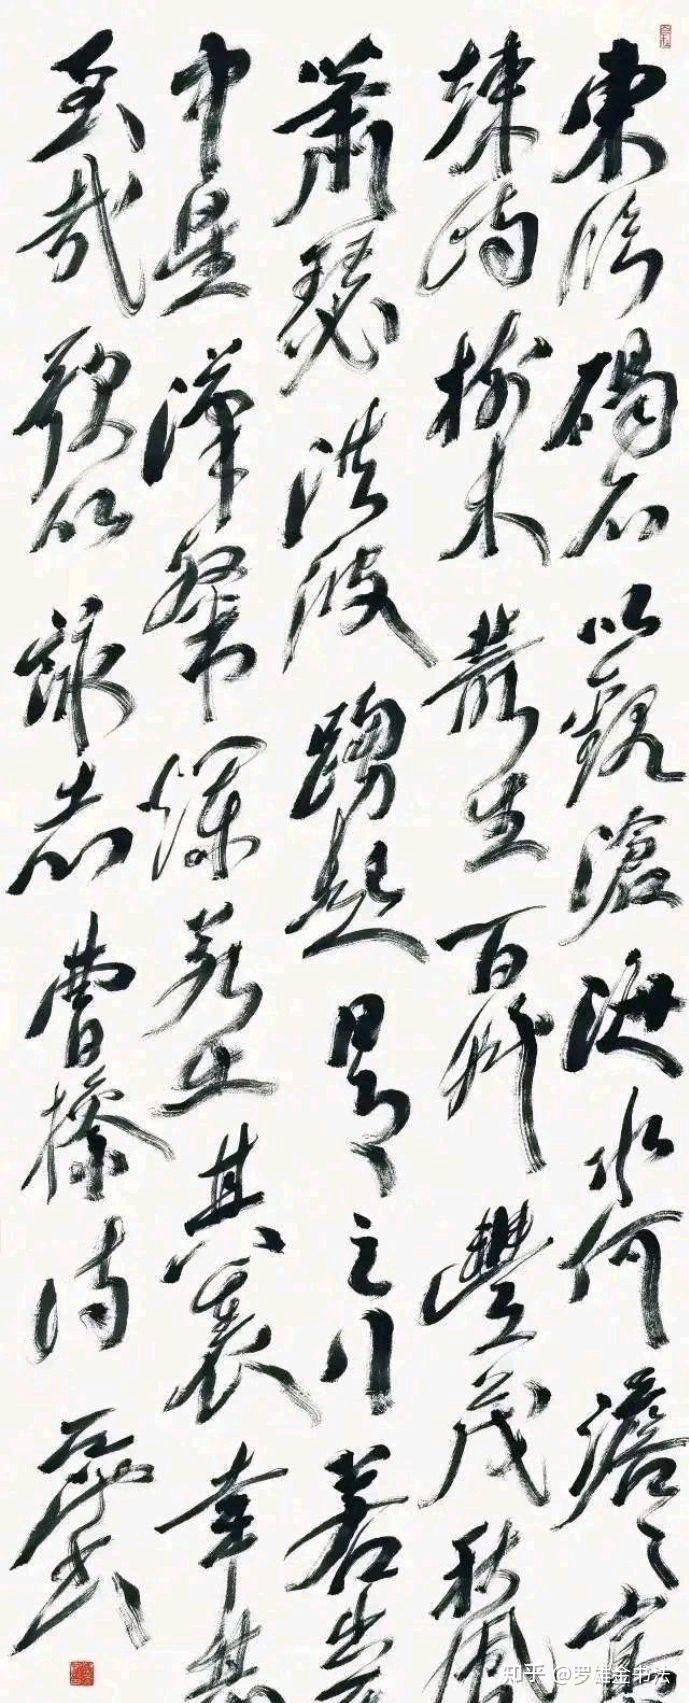 東臨碣石以觀滄海水何澹々山島
竦峙樹木叢生百草豐茂秋風
蕭瑟洪波踴起日月之行若出其
中星漢粲爛若出其裏幸甚
至哉歌以詠志曹操詩
知乎 @罗雄金书法